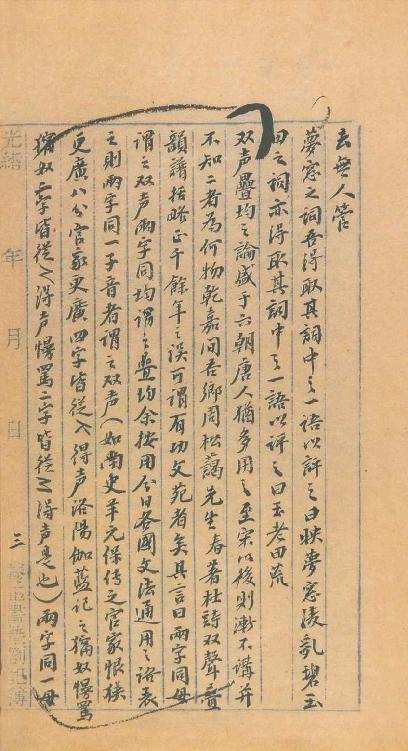 去無人管
夢窗之詞吾得取其詞中之一語以評之曰映夢窗淩亂碧玉
田之詞亦得取其詞中之一語以評之曰玉老田荒
双声疊均之論盛于六朝唐人猶多用之至宋以後則漸不講并
不知二者為何物乾嘉间吾鄉周松靄先生春著杜詩双聲疊
韻譜括略正千餘年之误可谓有功文苑者矣其言曰兩字同母
谓之双声兩字同均谓之疊均余按用今日各國文法通用之语表
之則兩字同一子音者谓之双声(如南史羊元保传之官家恨狭
更廣八分官家更廣四字皆從k得声洛陽伽藍记之獰奴慢罵
獰奴二字皆從n得声慢罵二字皆從m得声是也)兩字同一母
光緒 年 月 日
三